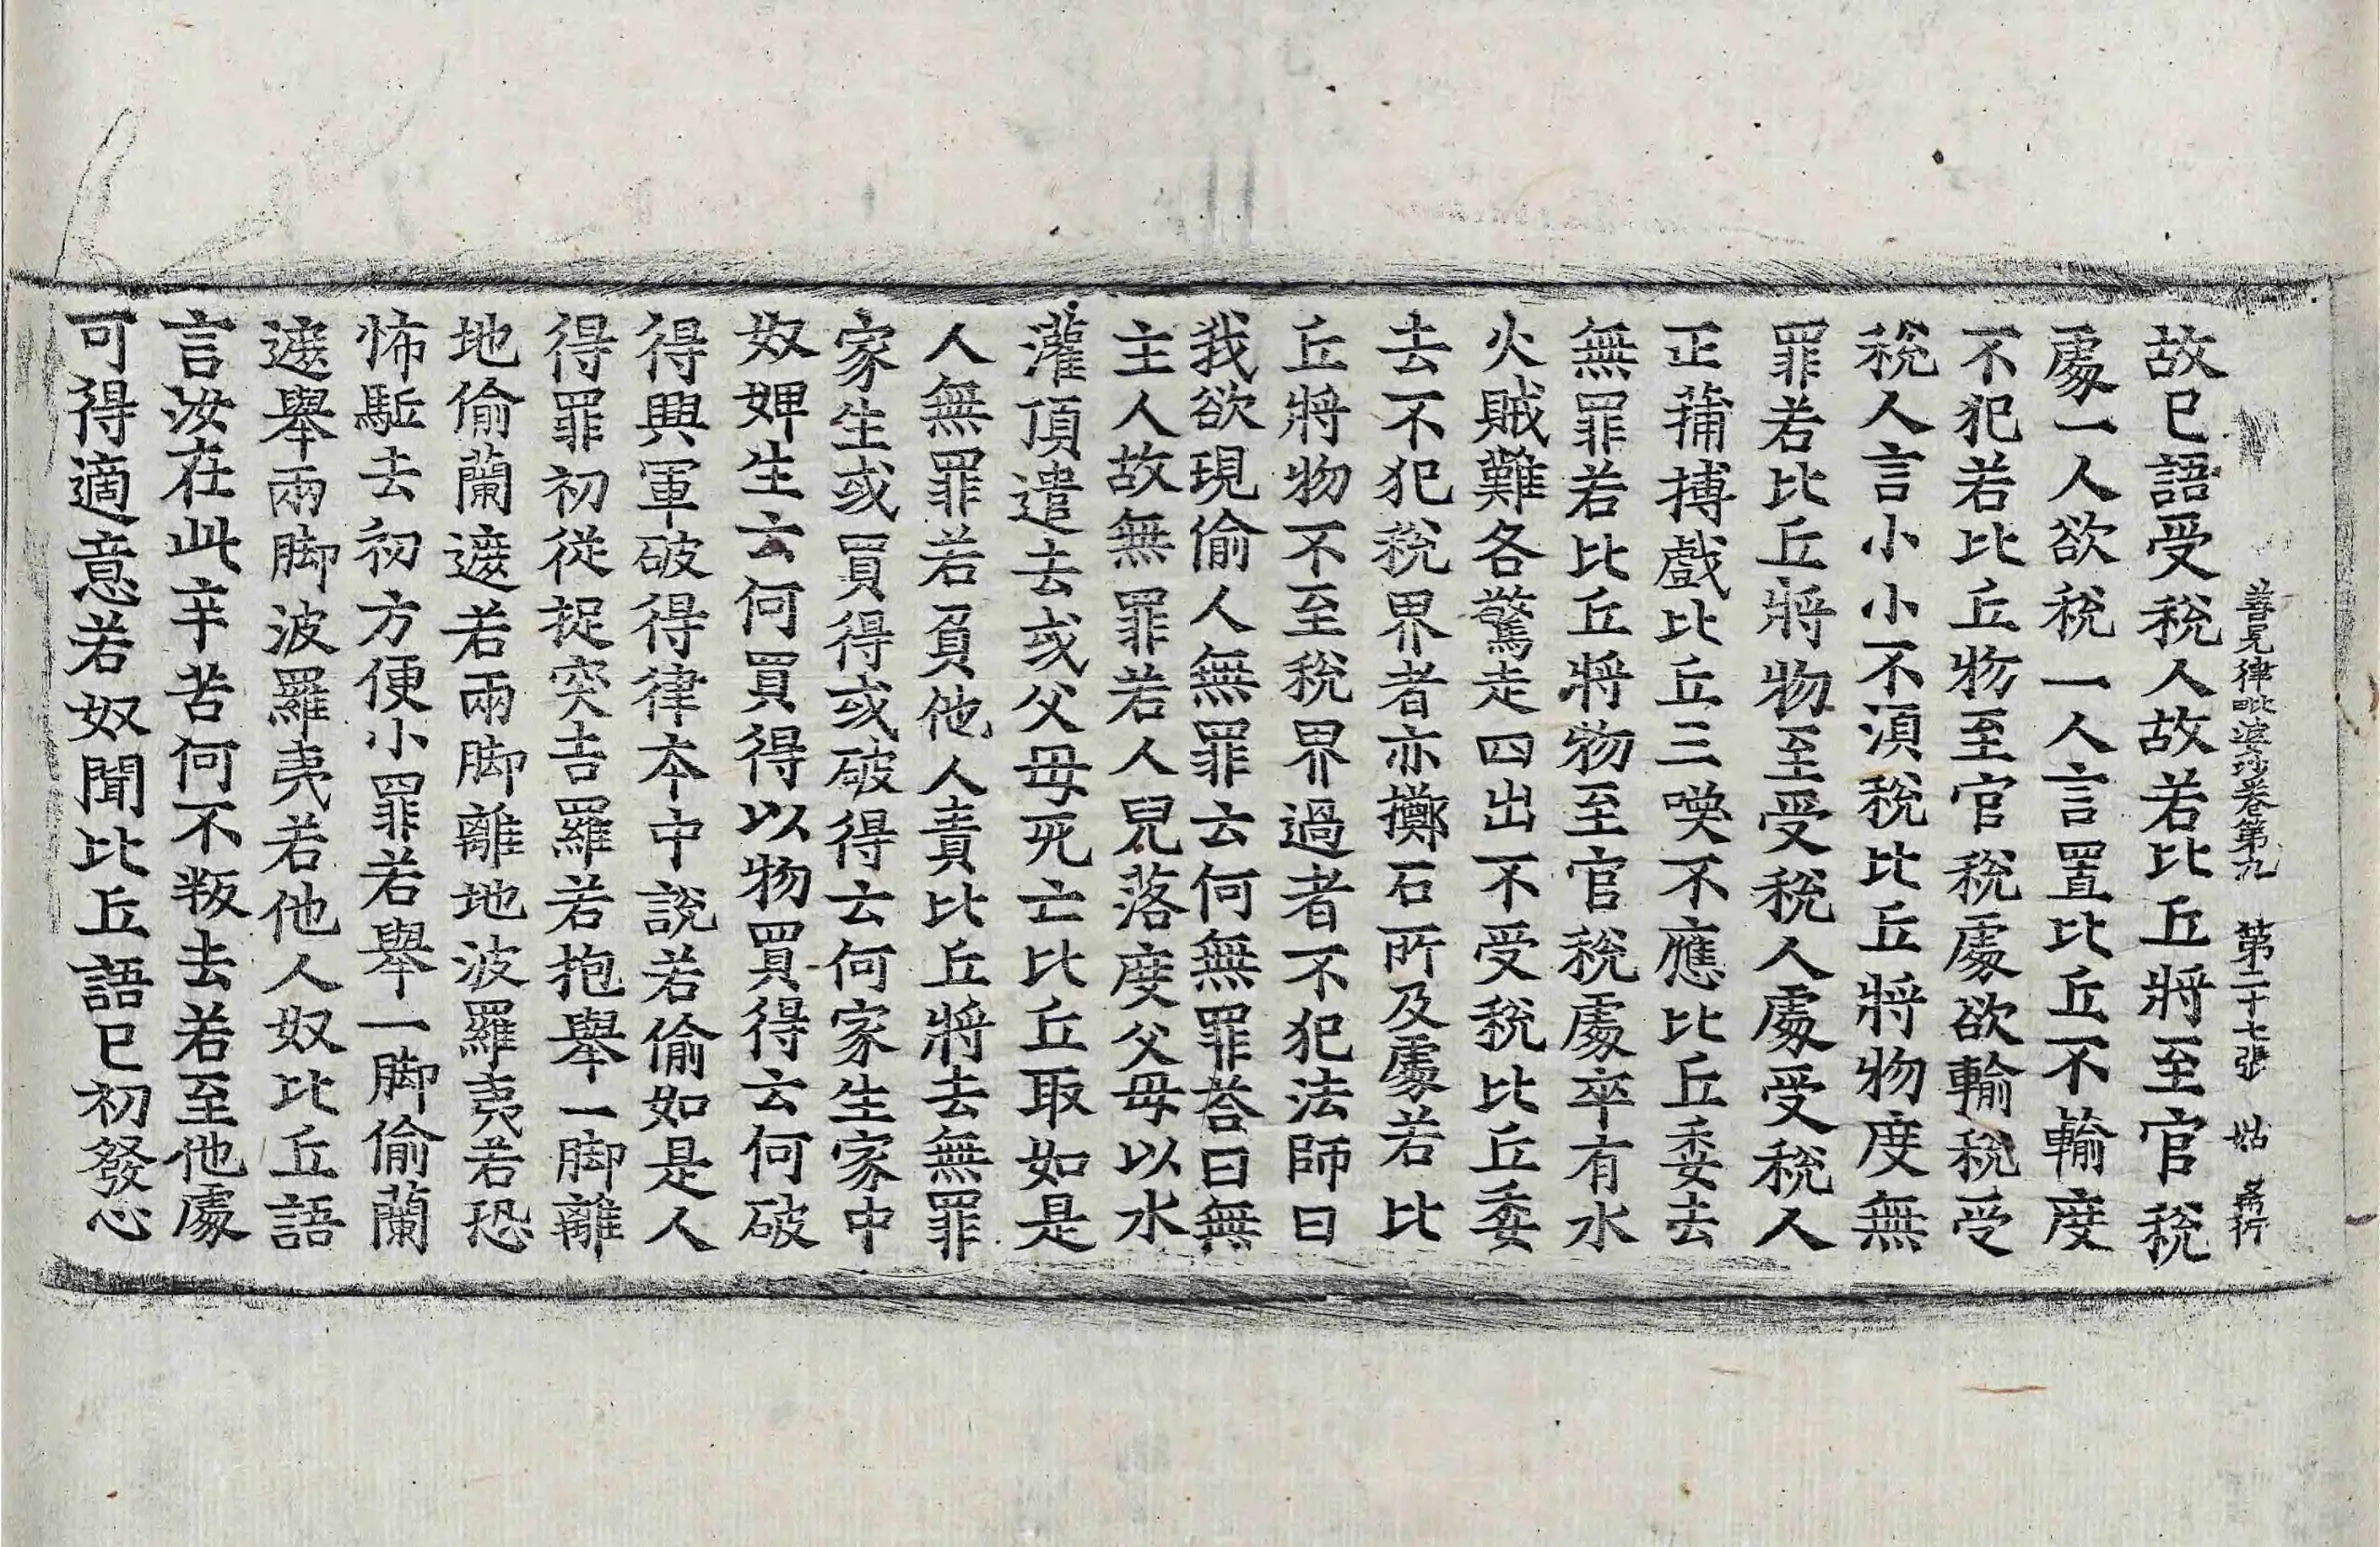 善見律毗婆沙卷第九 第二十七張 姑
故已語受稅人故若比丘將至官稅
處一人欲稅一人言置比丘不輸度
不犯若比丘物至官稅處欲輸稅受
稅人言小小不湏稅比丘將物度無
罪若比丘將物至受稅人處受稅人
正蒱搏戲比丘三喚不應比丘委去
無罪若比丘將物至官稅處卒有水
火賊難各驚走四出不受稅比丘委
去不犯稅界者亦擲石所及處若比
丘將物不至稅界過者不犯法師曰
我欲現偷人無罪云何無罪荅曰無
主人故無罪若人兒落度父母以水
灌頂遣去或父母死亡比丘取如是
人無罪若負他人責比丘將去無罪
家生或買得或破得云何家生家中
奴婢生云何買得以物買得云何破
得興軍破得律本中說若偷如是人
得罪初從捉突吉羅若抱舉一脚離
地偷蘭遮若兩脚離地波羅夷若恐
怖駈去初方便小罪若舉一脚偷蘭
遮舉兩脚波羅夷若他人奴比丘語
言汝在此辛苦何不叛去若至他處
可得適意若奴聞比丘語已初發心